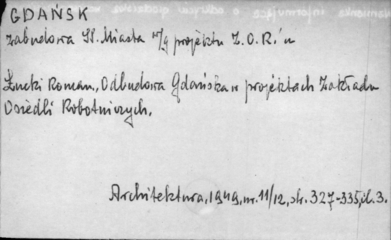 GDAŃSK
Zabudowa St. Miasta w/g projektu Z.O.R.'u
Łucki Roman, Odbudowa Gdańska w projektach Zakładu
Osiedli Robotniczych.
Architektura, 1949, nr. 11/12, str. 327-335, il. 3.